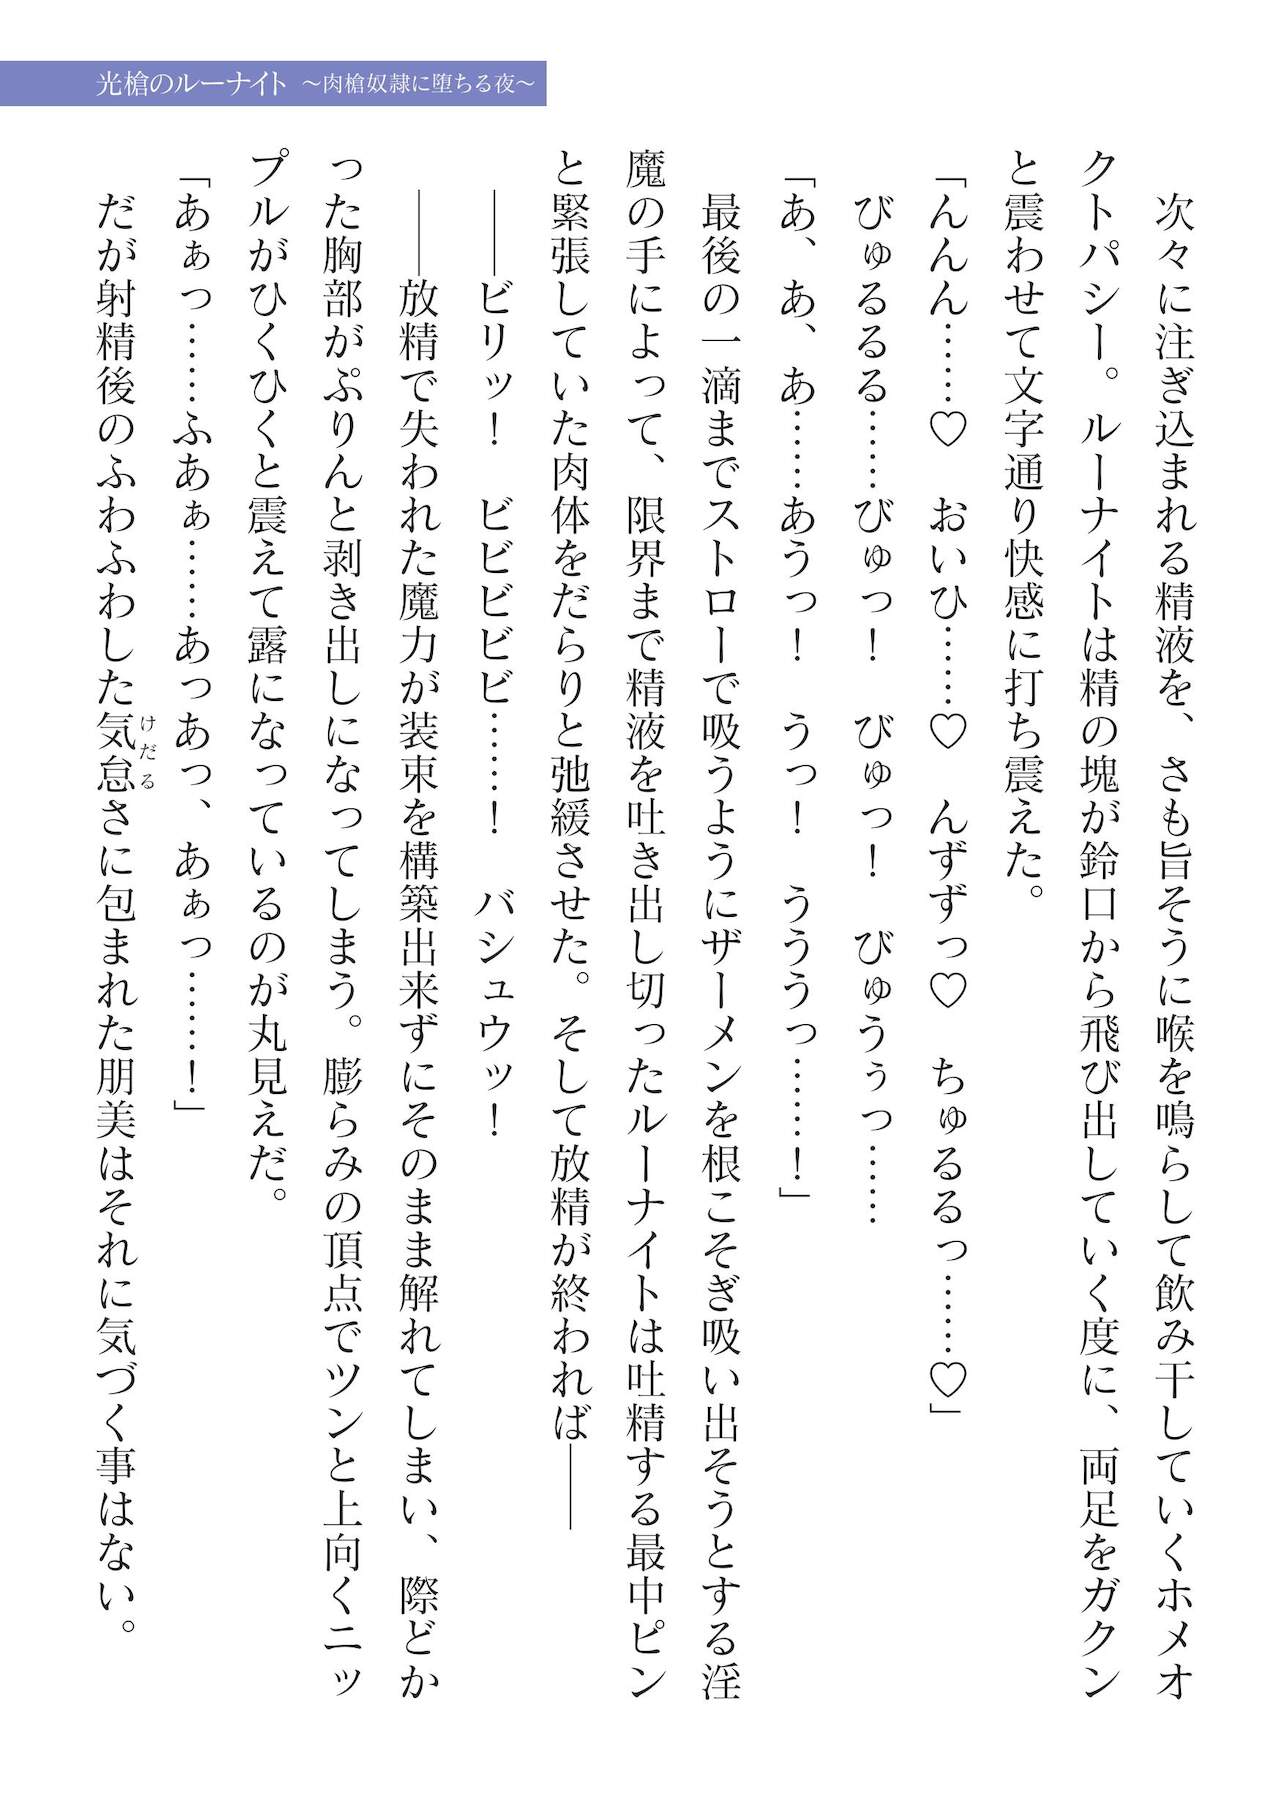 光槍のルーナイト ～肉槍奴隷に堕ちる夜～
　次々に注ぎ込まれる精液を、さも旨そうに喉を鳴らして飲み干していくホメオ
クトパシー。ルーナイトは精の塊が鈴口から飛び出していく度に、両足をガクン
と震わせて文字通り快感に打ち震えた。
「んんん……♡　おいひ……♡　んずずっ♡　ちゅるるっ……♡」
　びゅるるる……びゅっ！　びゅっ！　びゅうぅっ……
「あ、あ、あ……あうっ！　うっ！　うううっ……！」
　最後の一滴までストローで吸うようにザーメンを根こそぎ吸い出そうとする淫
魔の手によって、限界まで精液を吐き出し切ったルーナイトは吐精する最中ピン
と緊張していた肉体をだらりと弛緩させた。そして放精が終われば――
　――ビリッ！　ビビビビビ……！　バシュウッ！
　――放精で失われた魔力が装束を構築出来ずにそのまま解れてしまい、際どか
った胸部がぷりんと剥き出しになってしまう。膨らみの頂点でツンと上向くニッ
プルがひくひくと震えて露になっているのが丸見えだ。
「あぁっ……ふあぁ……あっあっ、あぁっ……！」
　だが射精後のふわふわした気怠さに包まれた朋美はそれに気づく事はない。
けだる